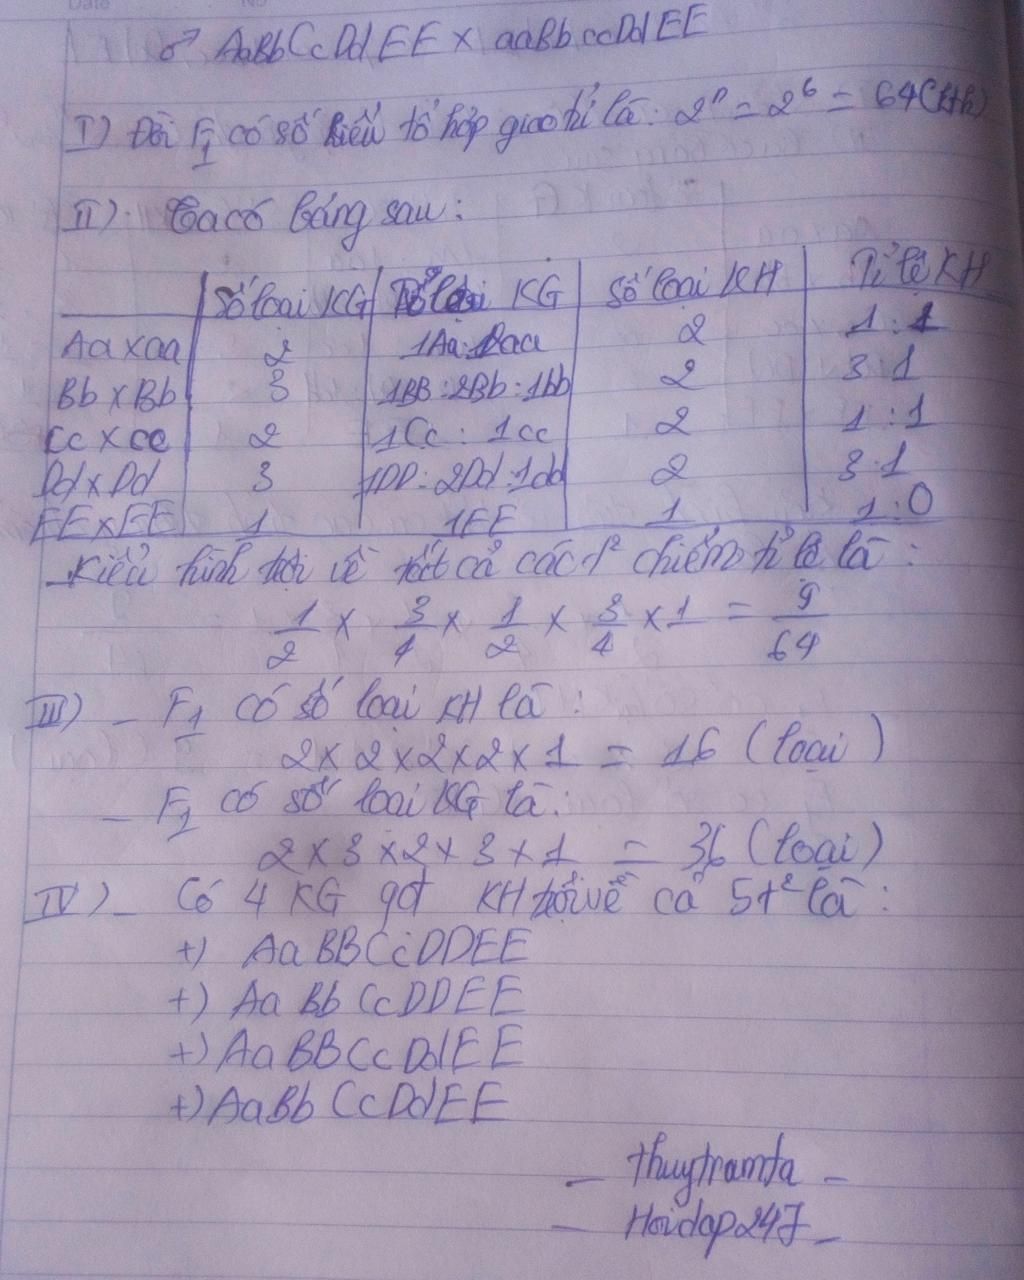 Date No
♂ AaBbCcDdEE x aaBbccDdEE
I) Đời F1 có số kiểu tổ hợp giao tử là: 2ⁿ = 2⁶ = 64 (kth)
II) Ta có bảng sau:
Số loại KG Tỉ lệ KG Số loại KH Tỉ lệ KH
Aa x aa 2 1Aa:1aa 2 1:1
Bb x Bb 3 1BB:2Bb:1bb 2 3:1
Cc x cc 2 1Cc : 1cc 2 1:1
Dd x Dd 3 1DD:2Dd:1dd 2 3:1
EE x EE 1 1EE 1 1:0
- Kiểu hình trội về tất cả các t² chiếm tỉ lệ là:
1/2 x 3/4 x 1/2 x 3/4 x 1 = 9/64
III) - F1 có số loại KH là:
2 x 2 x 2 x 2 x 1 = 16 (loại)
- F1 có số loại KG là:
2 x 3 x 2 x 3 x 1 = 36 (loại)
IV) - Có 4 KG qđ KH trội về cả 5t² là:
+) AaBBCcDDEE
+) AaBbCcDDEE
+) AaBBCcDdEE
+) AaBbCcDdEE
- thuytramta -
- Hoidap247 -